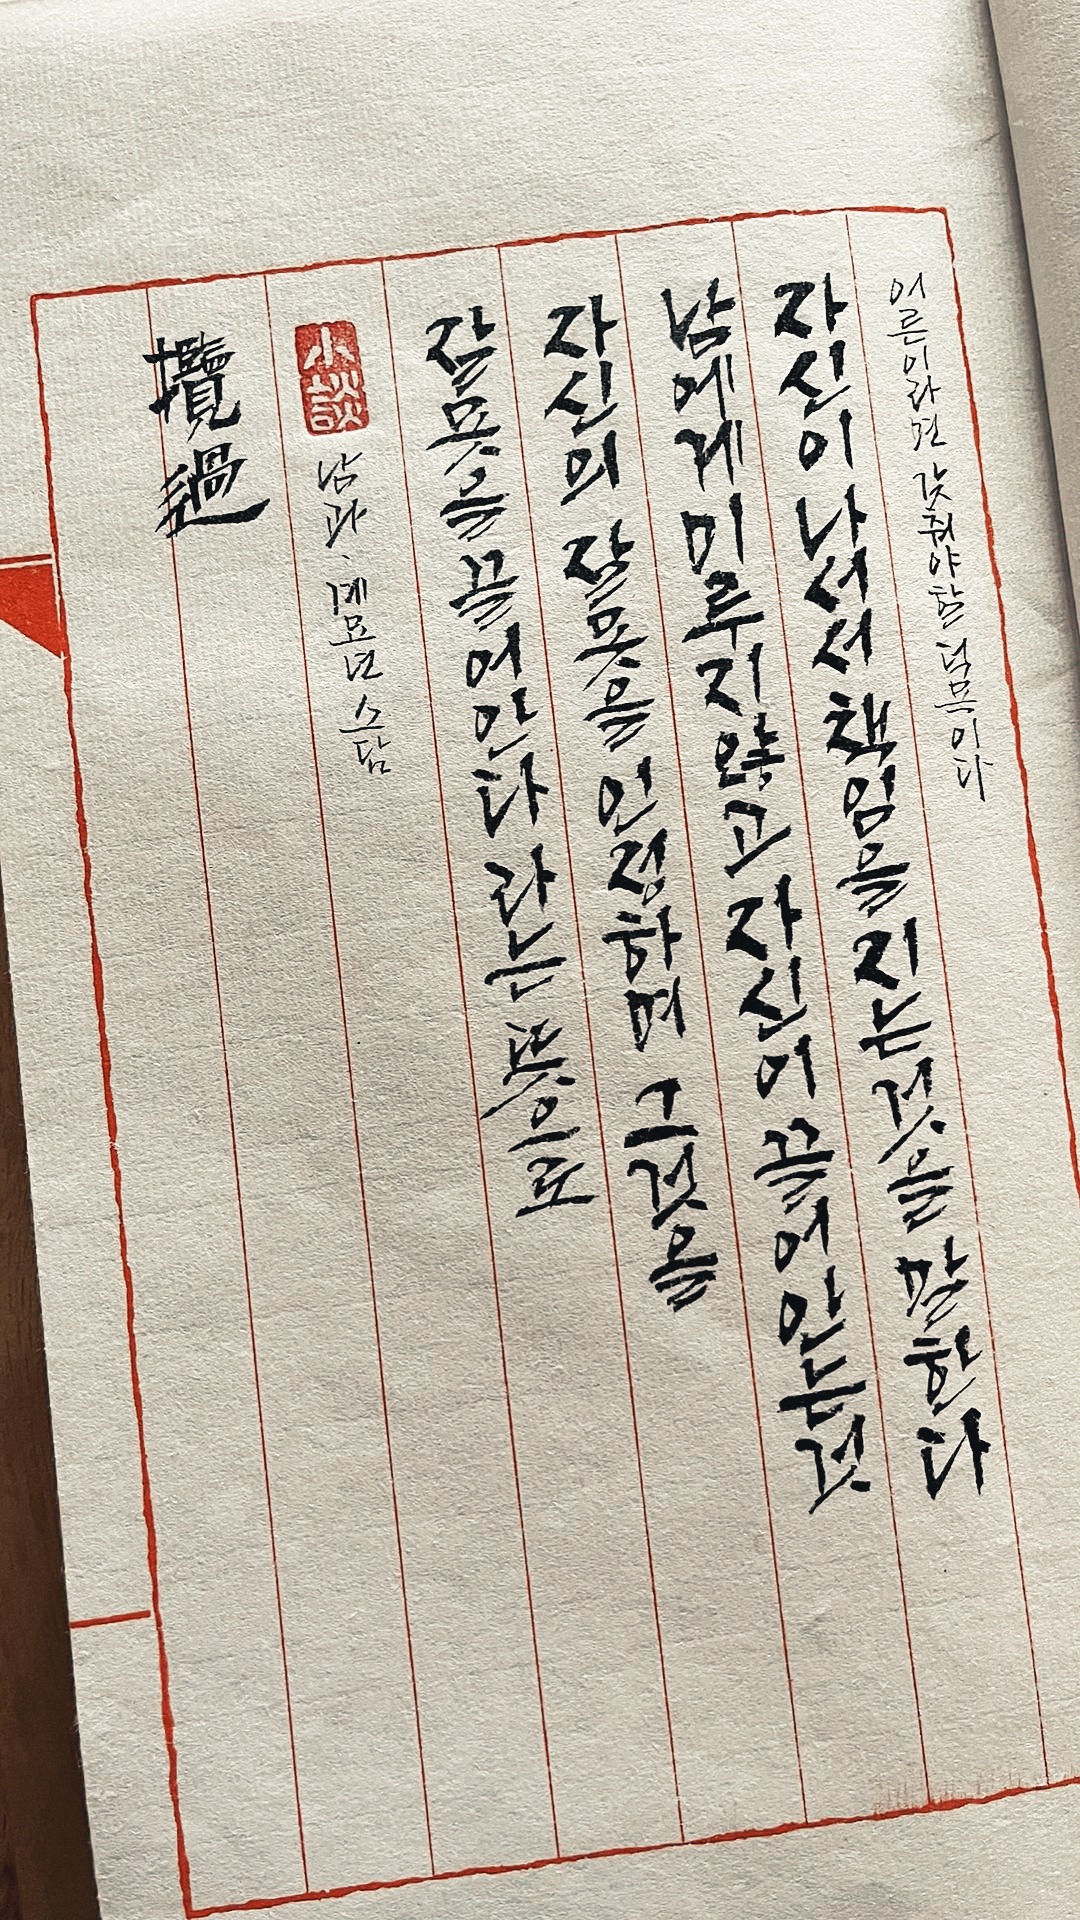 攬過
小談
남과、계묘년 소담
잘못을 끌어안다 라는 뜻으로
자신의 잘못을 인정하며 그것을
남에게 미루지 않고 자신이 끌어안는것
자신이 나서서 책임을 지는것을 말한다
어른이라면 갖춰야할 덕목이다